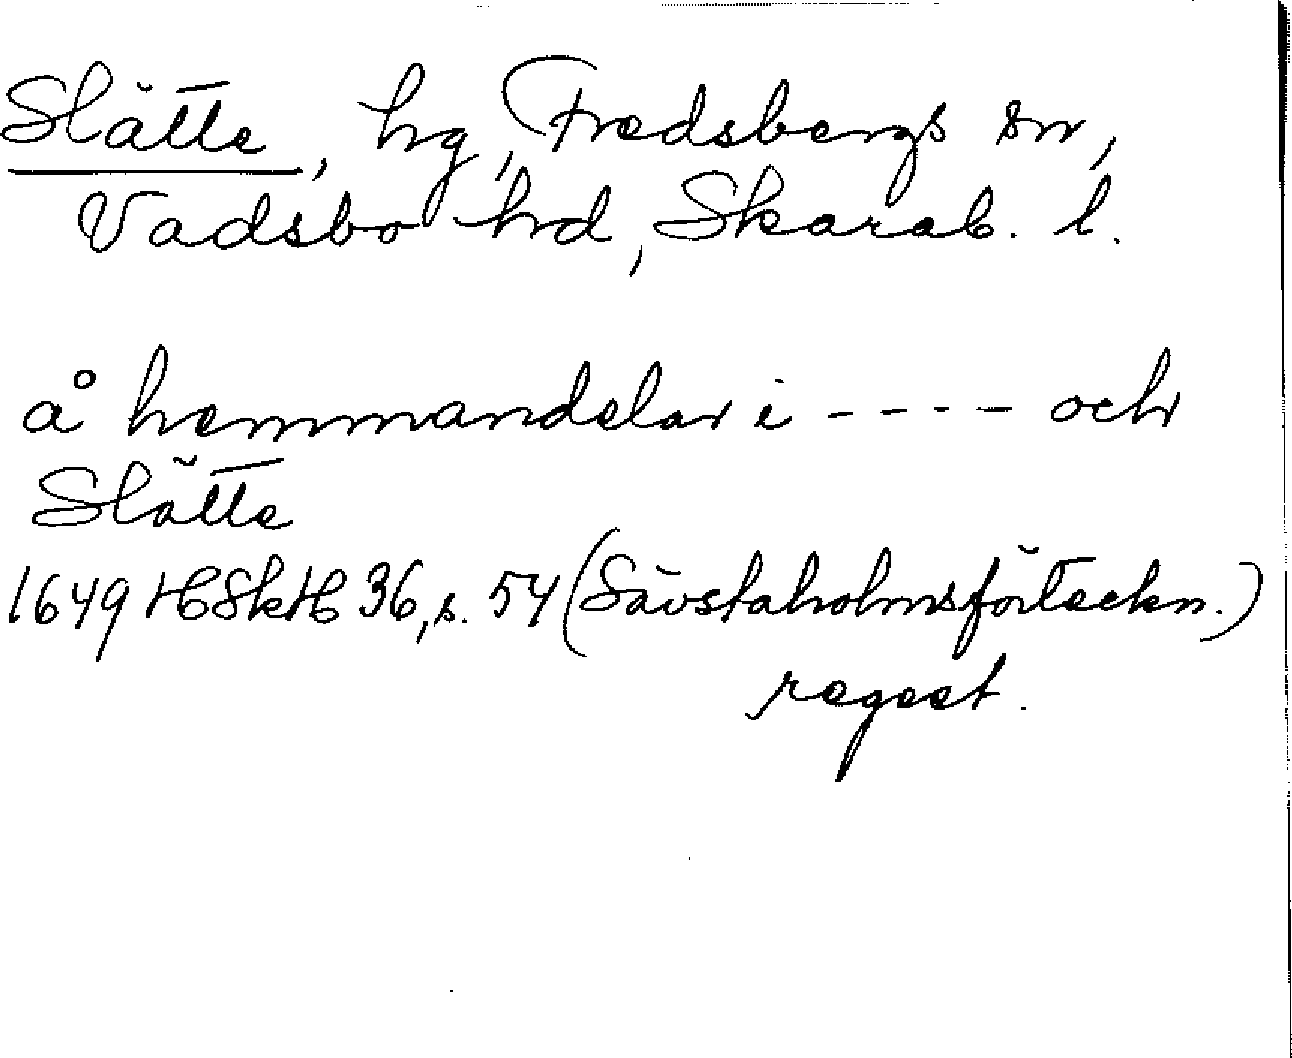 Slätte, hg, Fredsbergs sn,
Vadsbo hd, Skarab. l.
å hemmandelar i ---- och
Slätte
1649 HSkH 36, s. 54 (Sävstaholmsförteckn.)
regest.